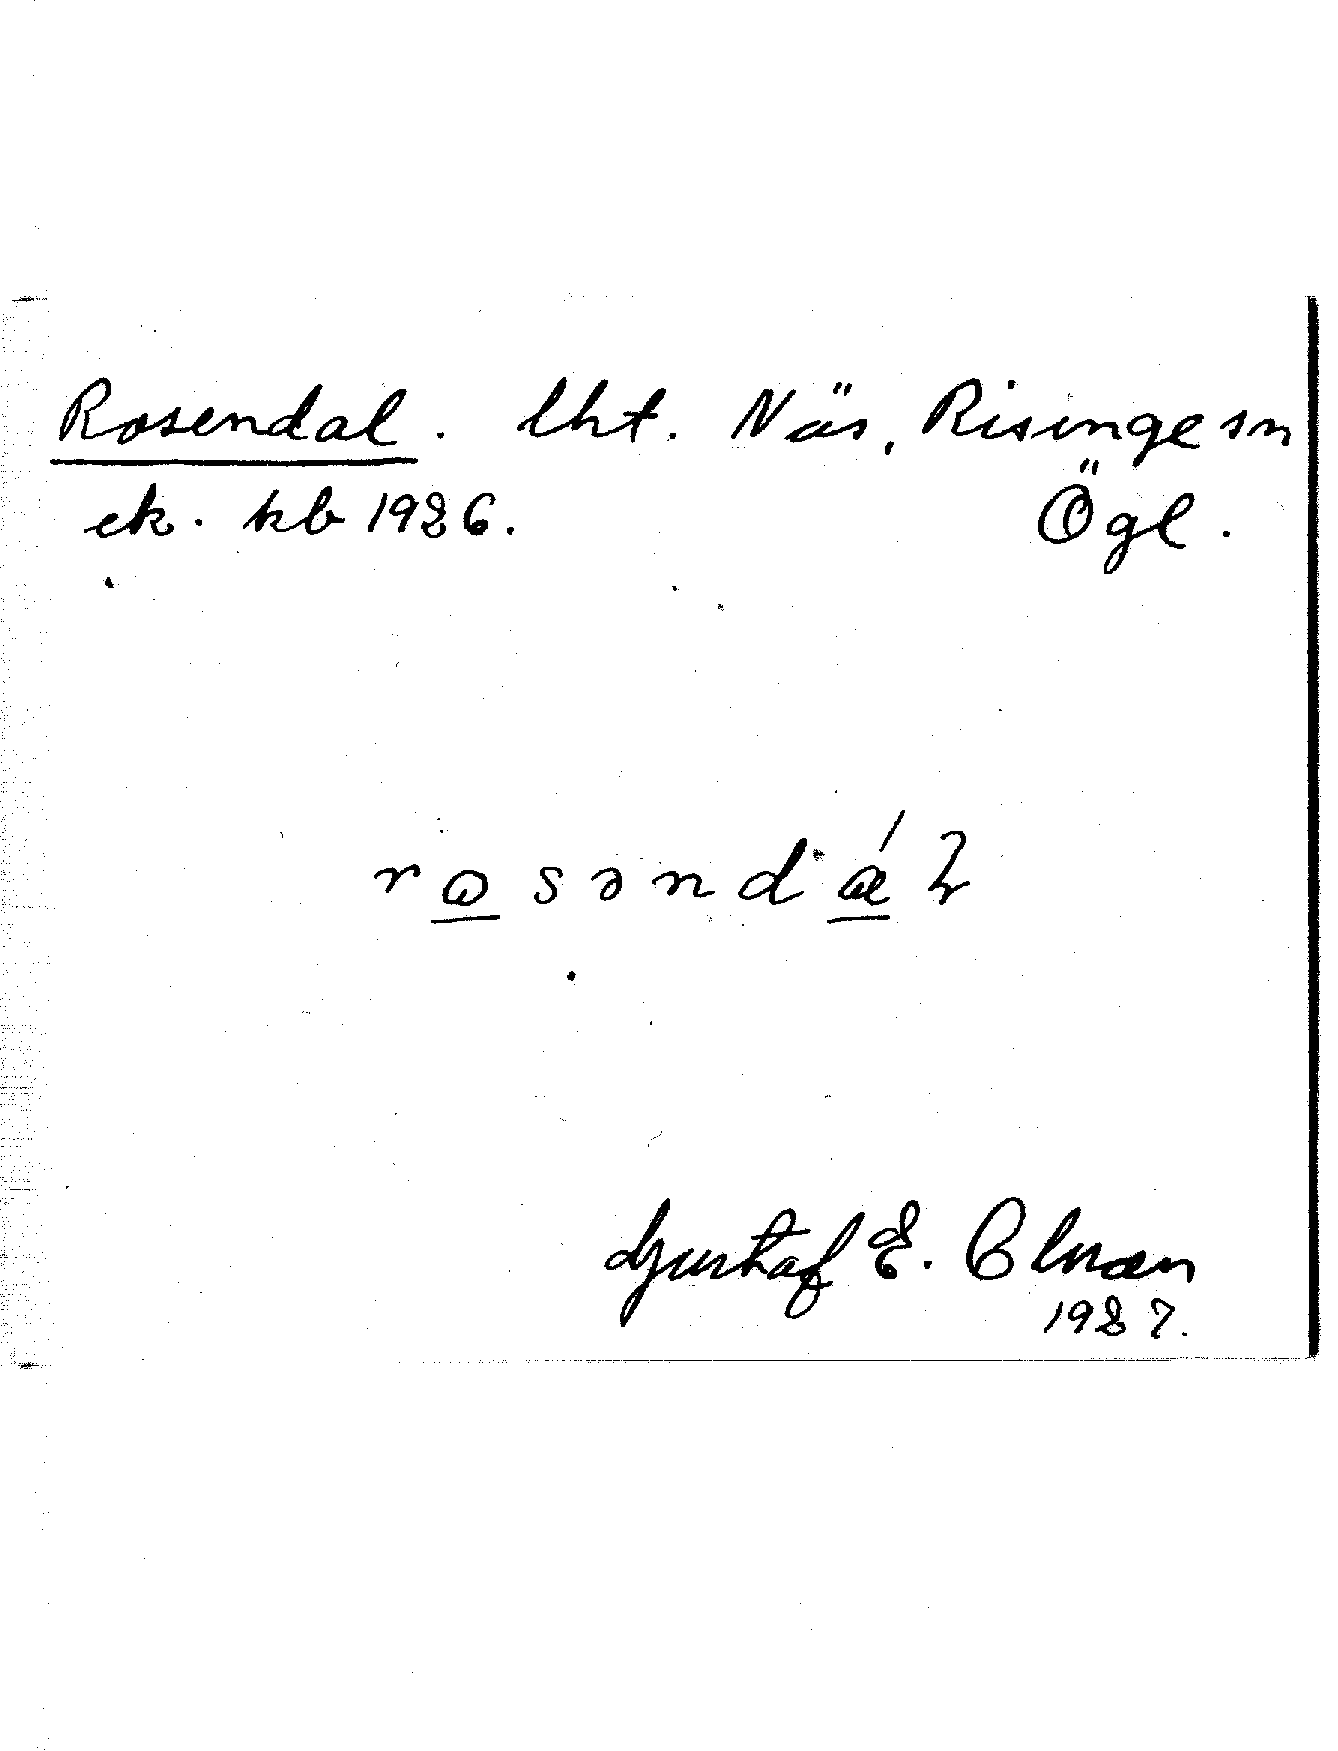 Rosendal. lht. Näs, Risinge sn
ek. kb 1926. Ögl.
rɷsəndáɫ
Gustaf E. Olman
1927.